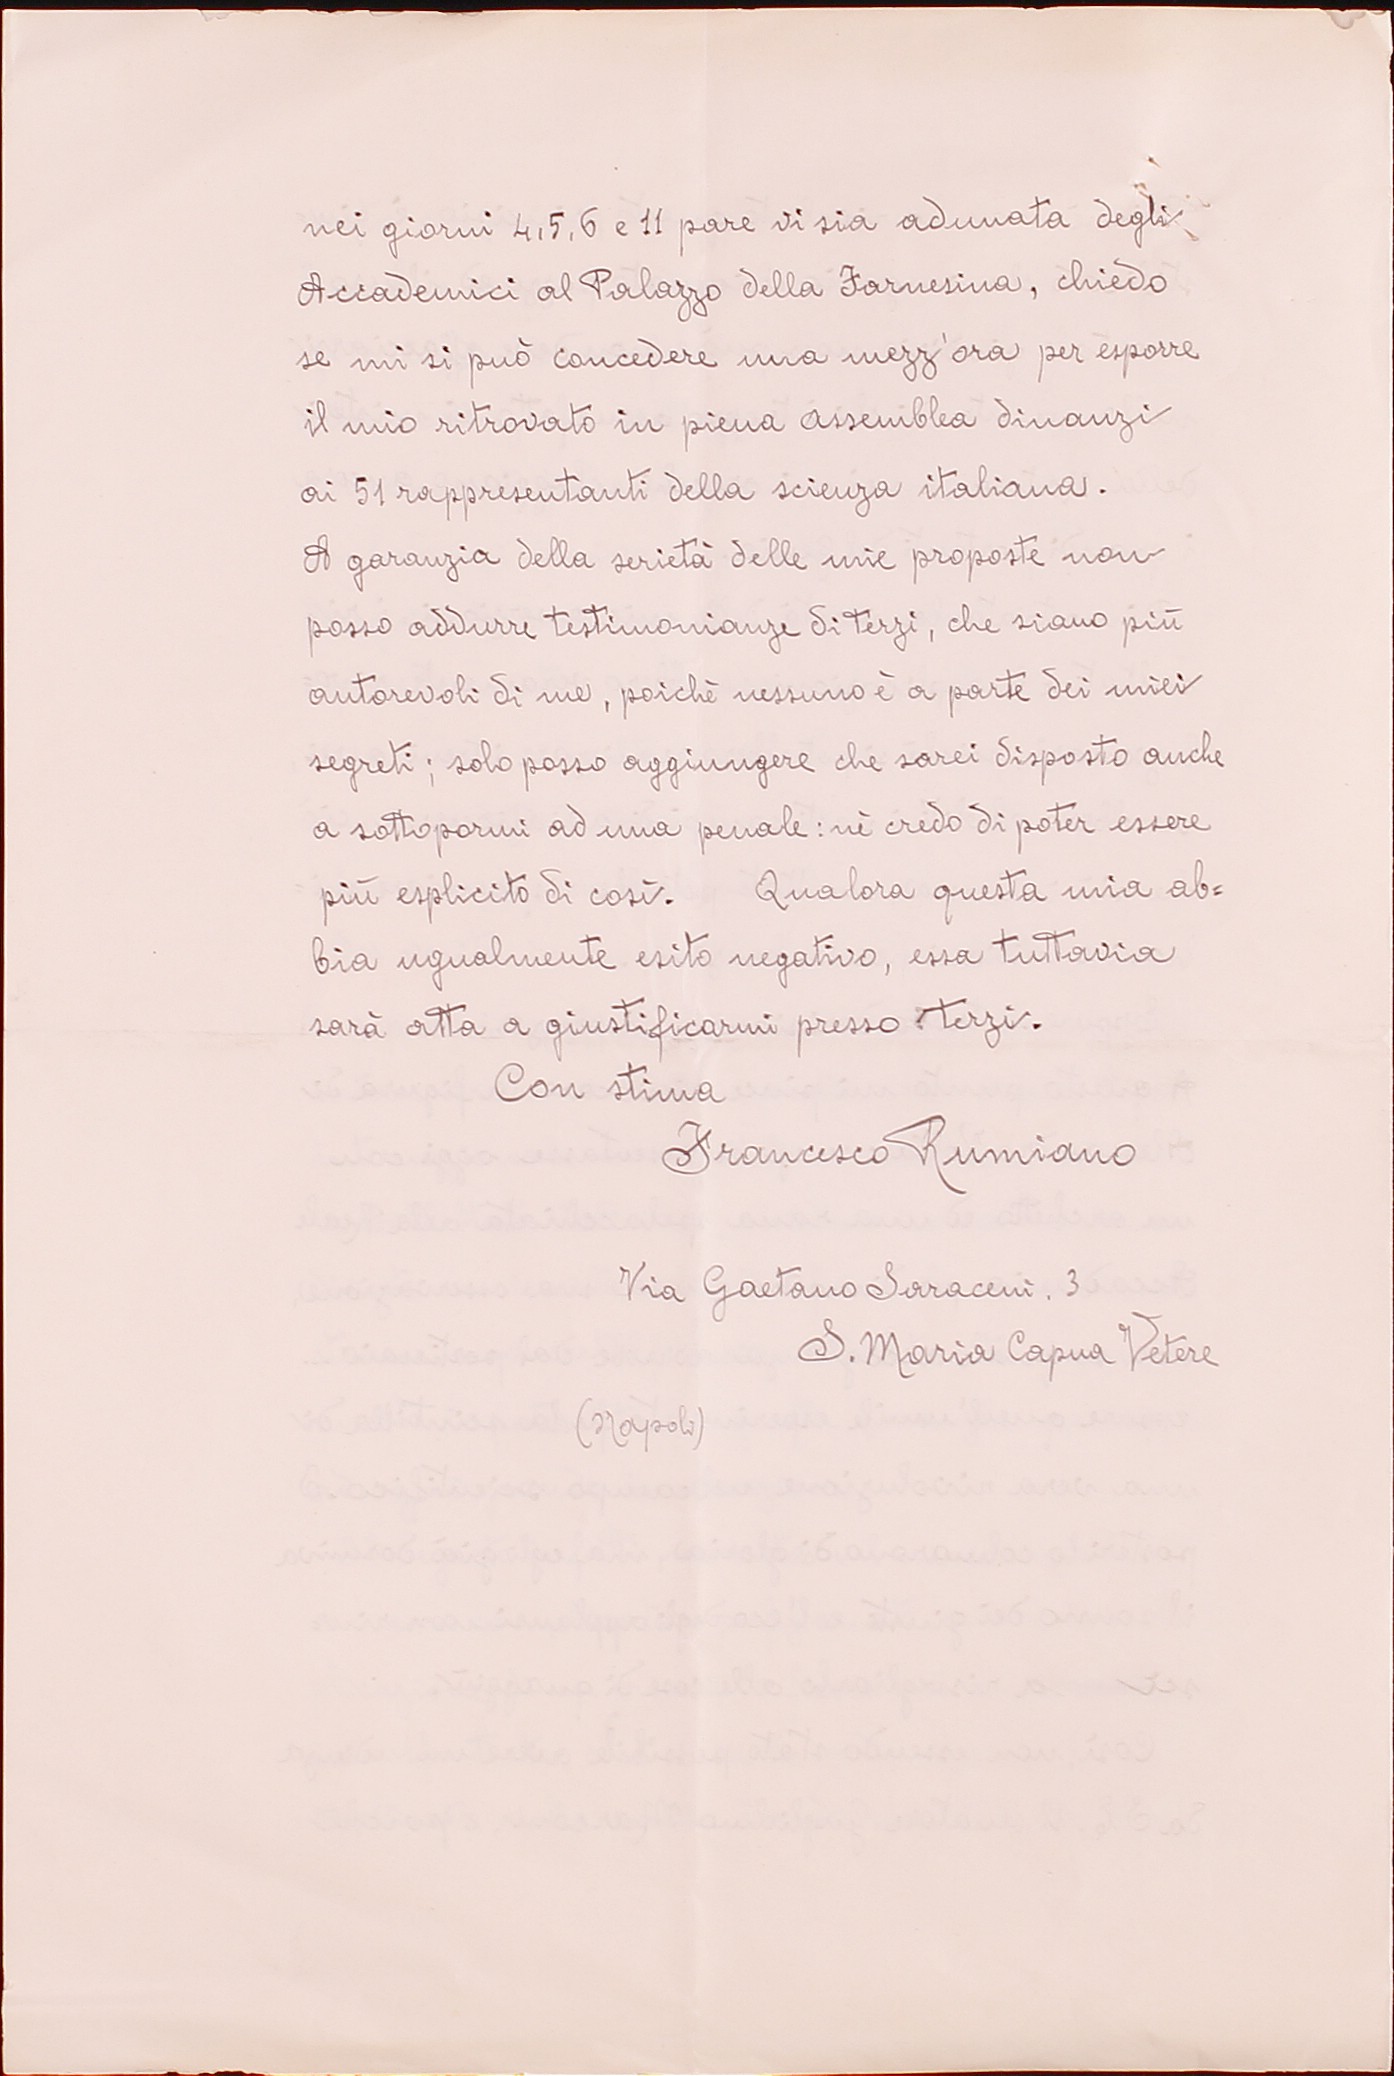 nei giorni 4, 5, 6 e 11 pare vi sia adunata degli
Accademici al Palazzo della Farnesina, chiedo
se mi si può concedere una mezz'ora per esporre
il mio ritrovato in piena assemblea dinanzi
ai 51 rappresentanti della scienza italiana.
A garanzia della serietà delle mie proposte non
posso addurre testimonianze di terzi, che siano più
autorevoli di me, poichè nessuno è a parte dei miei
segreti; solo posso aggiungere che sarei disposto anche
a sottopormi ad una penale: nè credo di poter essere
più esplicito di così. Qualora questa mia ab=
bia ugualmente esito negativo, essa tuttavia
sarà atta a giustificarmi presso i terzi.
Con stima
Francesco Rumiano
Via Gaetano Saraceni, 3
S. Maria Capua Vetere
(Napoli)